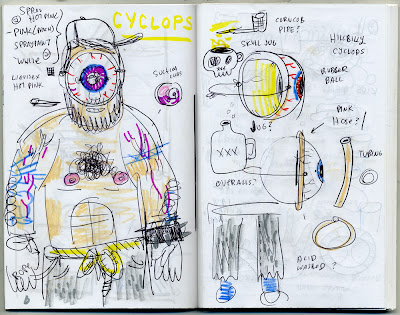 SPRAY
HOT PINK
- PINK (PEACH)
SPRAYPAINT
WHITE
LIQUITEX
HOT PINK
CYCLOPS
SUCTION
CUBS
ROPE
CORNCOB
PIPE?
SKULL JUG
HILLBILLY
CYCLOPS
RUBBER
BALL
PINK
HOSE?/
TUBING
JUG?
XXX
OVERALLS?
ACID
WASHED?